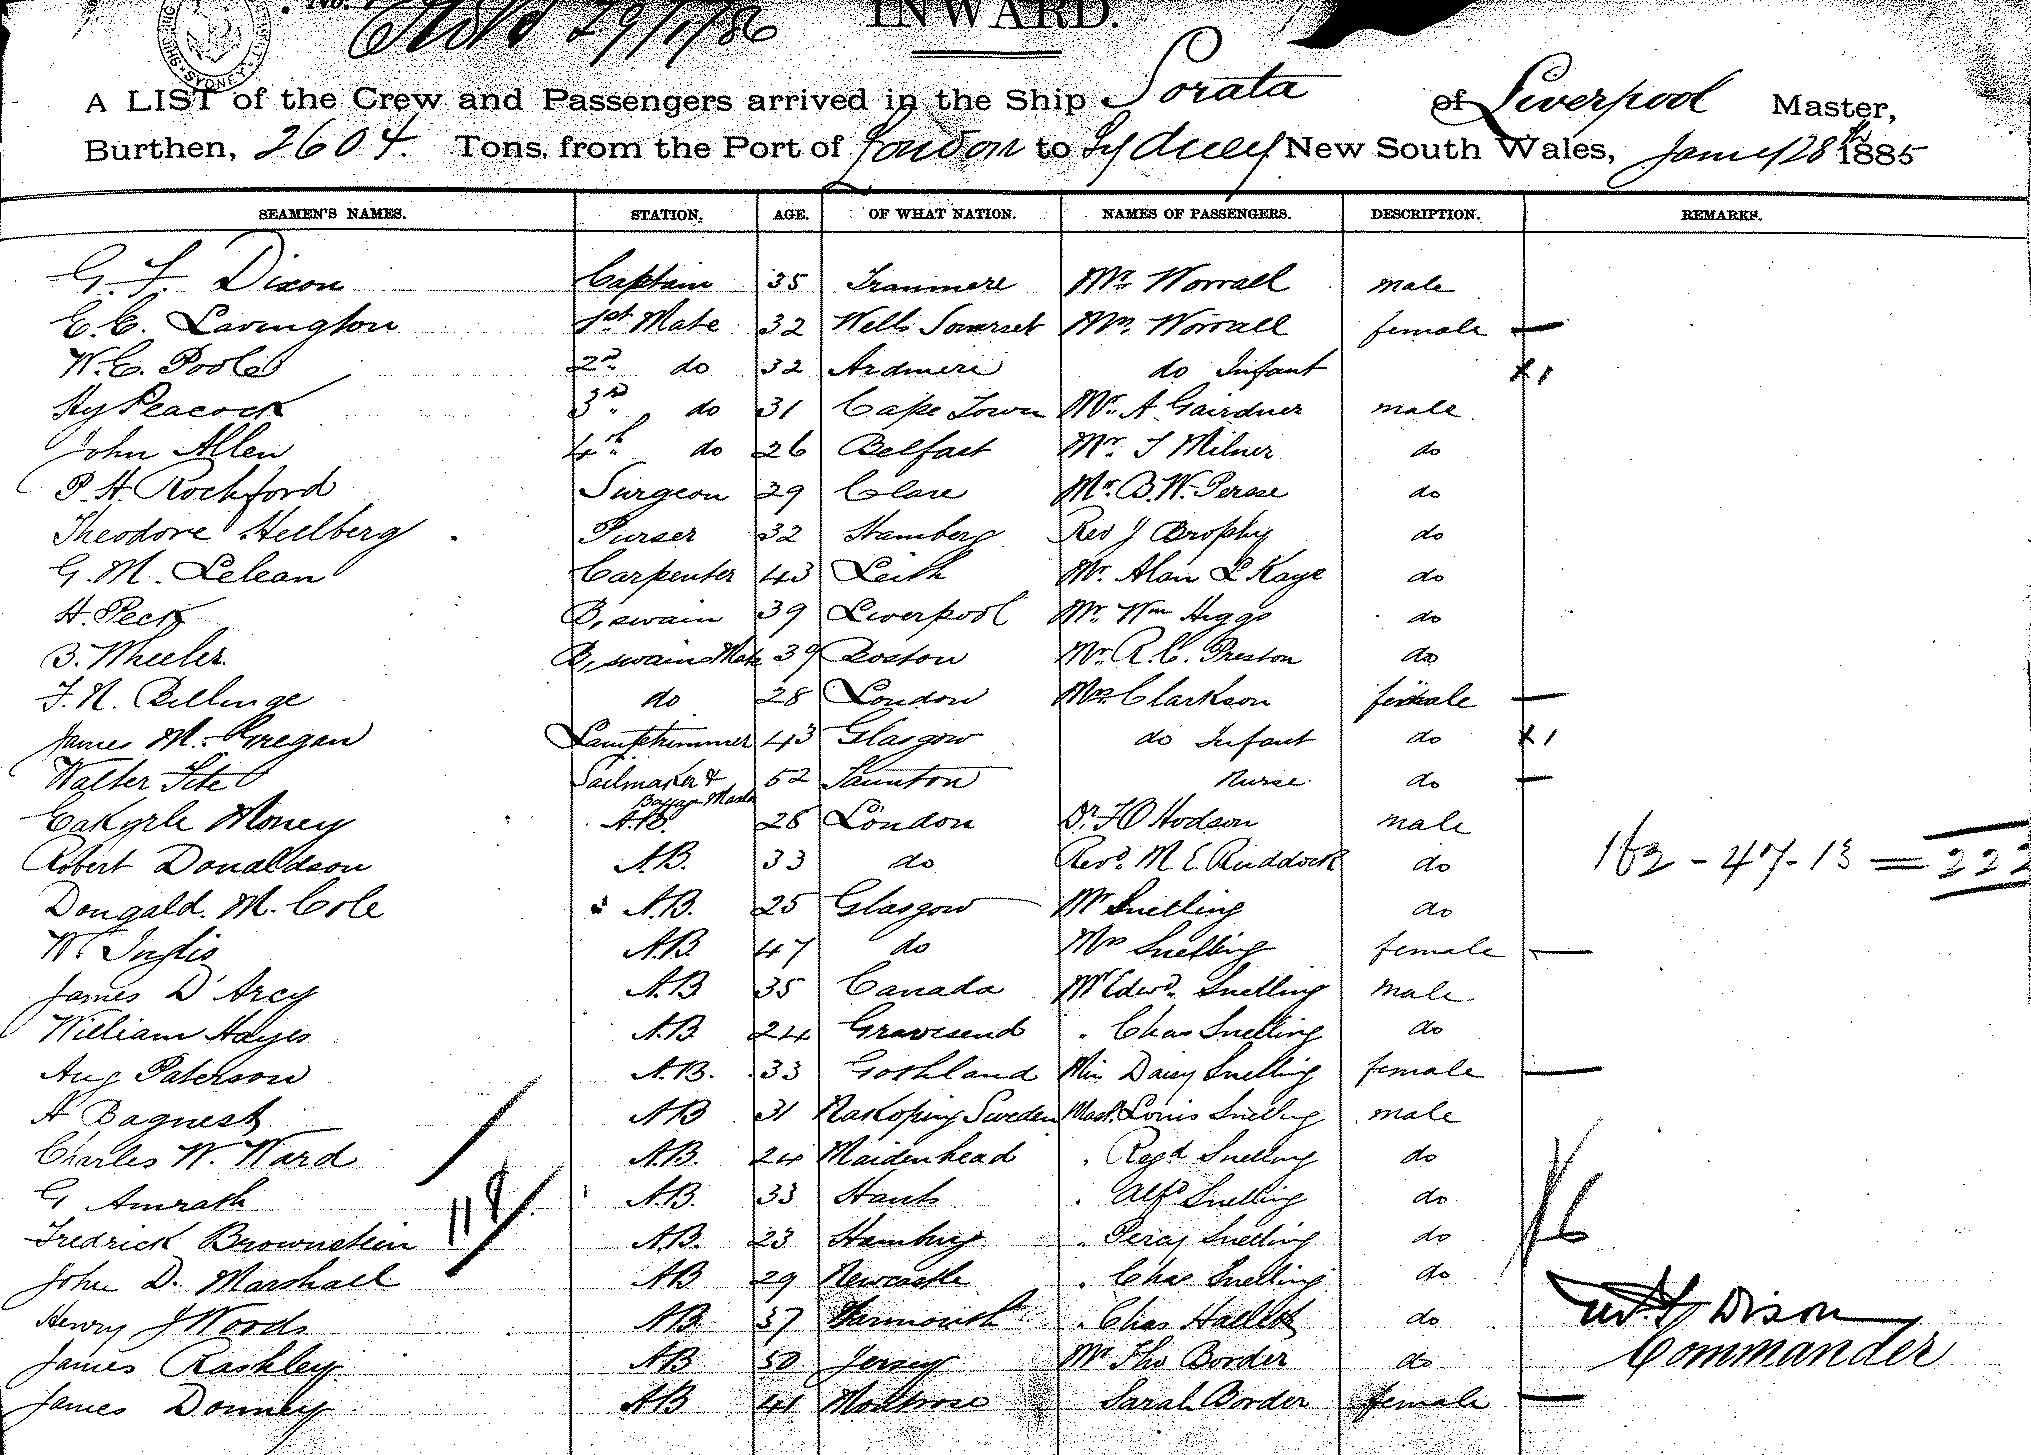 No.
29/1/86
INWARD.
SYDNEY
A LIST of the Crew and Passengers arrived in the Ship Sorata of Liverpool Master,
Burthen, 2604. Tons, from the Port of London to Sydney New South Wales, Jany 28th 1885
SEAMEN'S NAMES. STATION. AGE. OF WHAT NATION. NAMES OF PASSENGERS. DESCRIPTION. REMARKS.
G. F. Dixon Captain 35 Tranmere Mr. Worrall male
E. C. Lavington 1st Mate 32 Wells Somerset Mrs. Worrall female —
W. C. Poole 2nd do 32 Ardmere do Infant x 1
Hy Peacock 3rd do 31 Cape Town Mr. A. Gairdner male
John Allen 4th do 26 Belfast Mr. T Milner do
P. H. Rochford Surgeon 29 Clare Mr. B. W. Persse do
Theodore Hellberg Purser 32 Hamberg Rev J Brophy do
G. M. Lelean Carpenter 43 Leith Mr. Alan L Kaye do
H. Peck B,swain 39 Liverpool Mr. Wm Higgs do
B. Wheeler B,swains Mate 39 Boston Mr. R. C. Preston do
F. N. Billinge do 28 London Mrs. Clarkson female —
James M. Gregan Lamptrimmer 43 Glasgow do Infant do x 1
Walter Tite Sailmaker & 52 Taunton Nurse do —
Money A.B. 26 London Dr. F O Hodson male
Robert Donaldson A.B. 33 do Revd. M. E. Ruddock do
- 47 - 13 = 222
Dougald. M. Cole A.B. 25 Glasgow Mr Snelling do
W. Inglis A.B. 47 do Mrs Snelling female —
James D'Arcy A.B 35 Canada Mr Edwd. Snelling male
William Hayes A.B. 24 Gravesend " Chas Snelling do
Aug Paterson A.B. 33 Gothland Miss Daisy Snelling female —
A Bagnest A.B 31 Sweden Mast. Louis Snelling male
Charles W. Ward A.B. 24 Maidenhead " Regd Snelling do
G Amrath A.B. 33 Hants " Alfd Snelling do
118
Fredrick Brownstein A.B. 23 Hamburg " Percy Snelling do
John D. Marshall AB 29 Newcastle " Chas Snelling do
Henry J Woods AB 37 Yarmouth " Chas Hallett do
Dixon
James Rashley AB 50 Jersey Mr Tho Border do
Commander
James Donney AB 41 Montrose Sarah Border female —